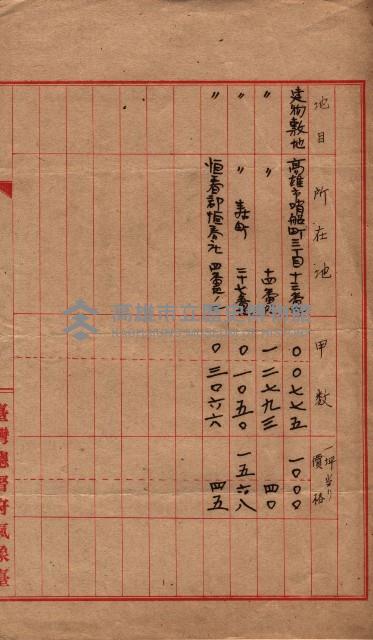 地目 所在地 甲数 一坪当リ價格
建物敷地 高雄市哨船町三丁目十三番 〇〇七七五 一〇〇〇
〃 〃 十四番 一二七九三 四〇
〃 〃 寿町 二十七番 〇一〇五〇 一五六八
〃 恒春郡恒春庄 四番 〇三〇六六 四五
臺灣總督府氣象臺
高雄市立歷史博物館
KAOHSIUNG MUSEUM OF HISTORY